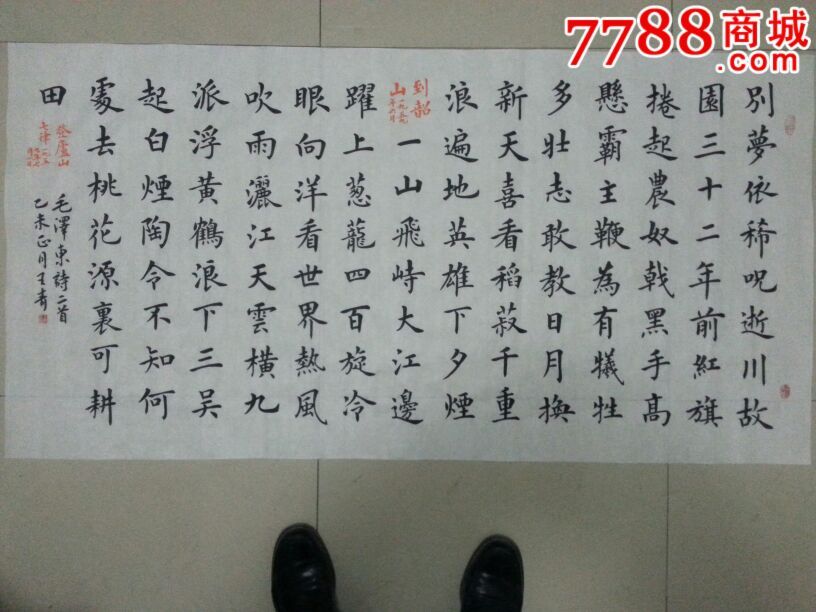 別夢依稀呪逝川故
園三十二年前紅旗
捲起農奴戟黑手高
懸霸主鞭為有犧牲
多壯志敢教日月換
新天喜看稻菽千重
浪遍地英雄下夕煙
到韶
山一九五九年六月
一山飛峙大江邊
躍上葱蘢四百旋冷
眼向洋看世界熱風
吹雨灑江天雲橫九
派浮黃鶴浪下三吳
起白煙陶令不知何
處去桃花源裏可耕
田
登廬山
七律
毛澤東詩二首
乙未正月王青
7788商城
.com